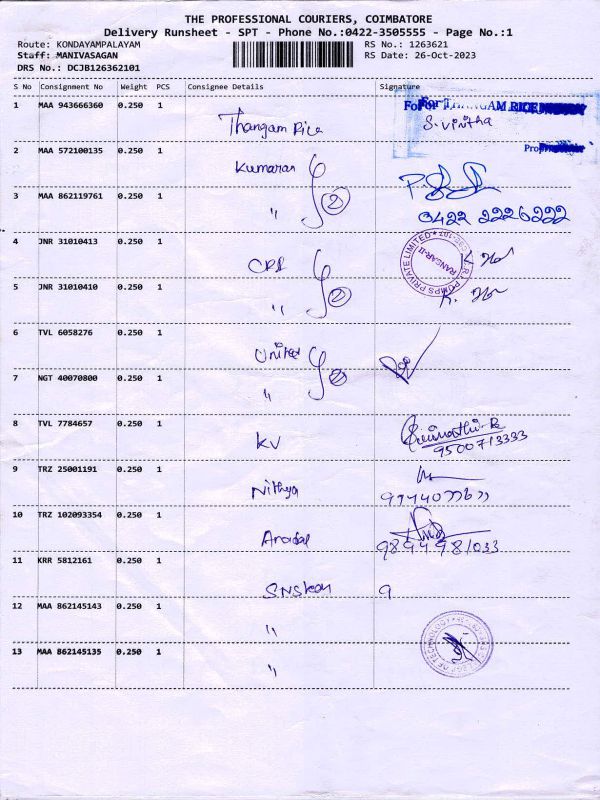 THE PROFESSIONAL COURIERS, COIMBATORE
Delivery Runsheet - SPT - Phone No.:0422-3505555 - Page No.:1
Route: KONDAYAMPALAYAM RS No.: 1263621
Staff: MANIVASAGAN RS Date: 26-Oct-2023
DRS No.: DCJB126362101
S No Consignment No Weight PCS Consignee Details Signature
1 MAA 943666360 0.250 1 Thangam Rice For THANGAM RICE
S.Vinitha
2 MAA 572100135 0.250 1 Kumaran
3 MAA 862119761 0.250 1 〃 2 0422 2226222
4 JNR 31010413 0.250 1 CRI
5 JNR 31010410 0.250 1 〃 2
6 TVL 6058276 0.250 1 United
7 NGT 40070800 0.250 1 〃 2
8 TVL 7784657 0.250 1 KV 9500713333
9 TRZ 25001191 0.250 1 Nithya
10 TRZ 102093354 0.250 1 9894981033
11 KRR 5812161 0.250 1 9
12 MAA 862145143 0.250 1 〃
13 MAA 862145135 0.250 1 〃